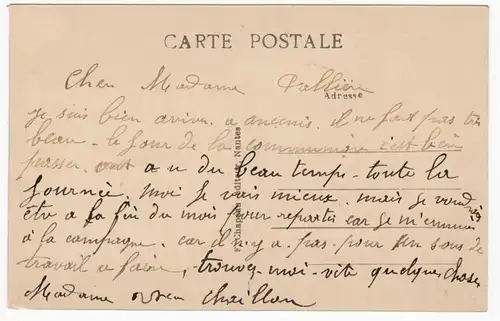 CARTE POSTALE
Cher Madame Pallière
Adresse
je suis bien arriver a ancenis. il ne fait pas très
beau - le jour de la communion c'est bien
passer ont a u du beau temps - toute la
journée. moi je vais mieux. mais je voudrais
être a la fin du mois pour repartir car je m'ennuie
à la campagne. car il n'y a pas pour un sous de
travail a faire, trouvez-moi-vite quelque chose
Madame Chaillou
F. Chapeau, Editeur, Nantes